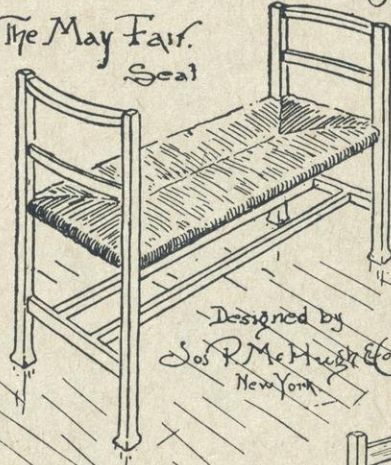 The May Fair.
Seat
Designed by
Jos P. McHugh & Co
New York.